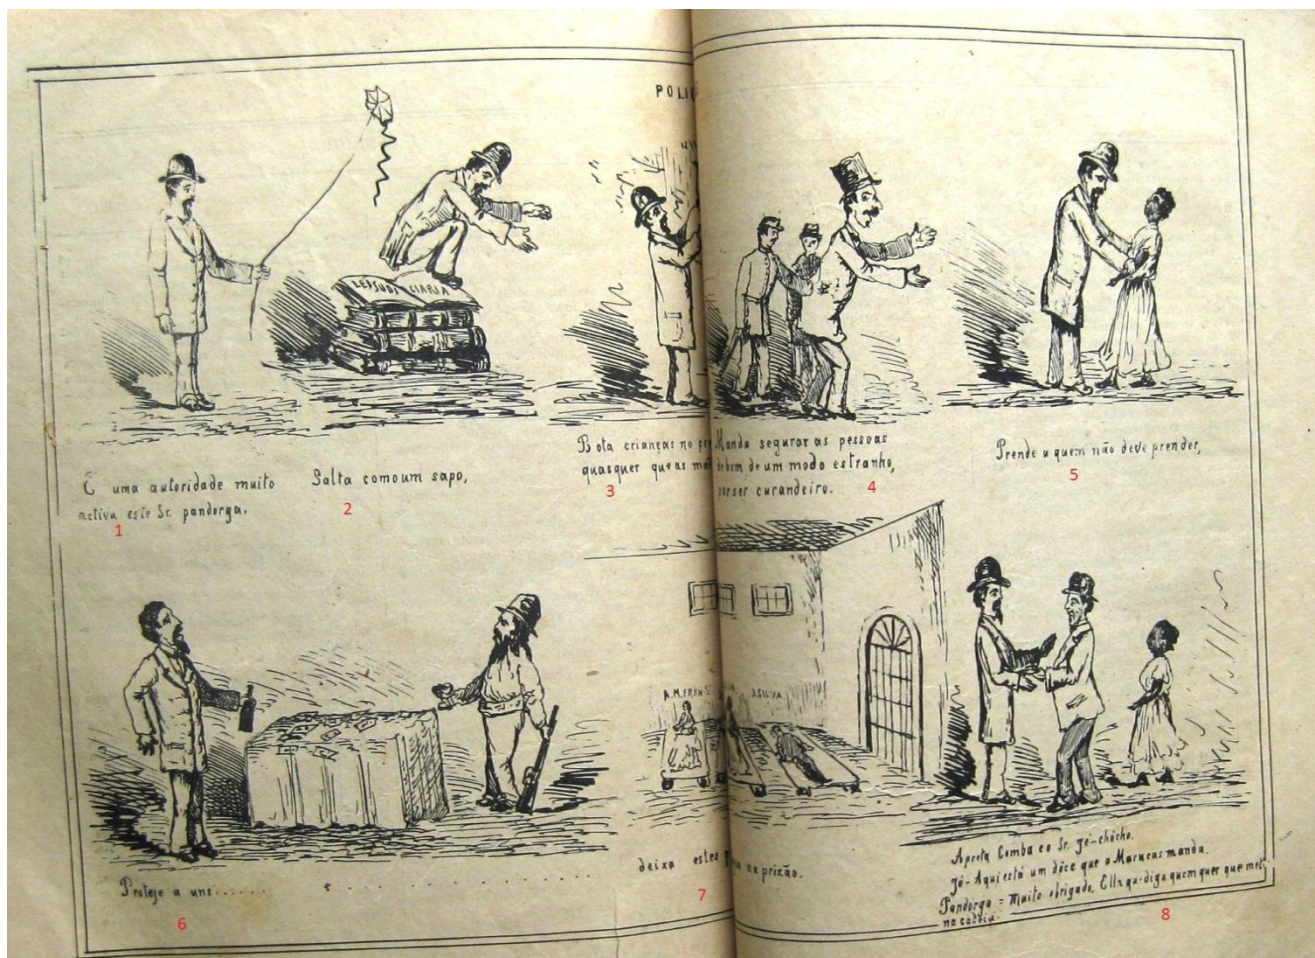 POLI
LEI JUDICIARIA
É uma autoridade muito
activa este Sr. pandorga.
1
Salta como um sapo,
2
Bota crianças no
quasquer que as
3
Manda segurar as pessoas
de bem de um modo estranho,
por ser curandeiro.
4
Prende a quem não deve prender,
5
Protege a uns......
6
e . . . . . . . . . . . . . .
A.M.FRAN
J.SILVA
deixa estes na prizão.
7
A preta Comba e o Sr. Jé-chócho.
Jé- Aqui está um dôce que o Marucas manda.
Pandorga = Muito obrigado. Ella qu-diga quem quer que meta
na cadeia.
8